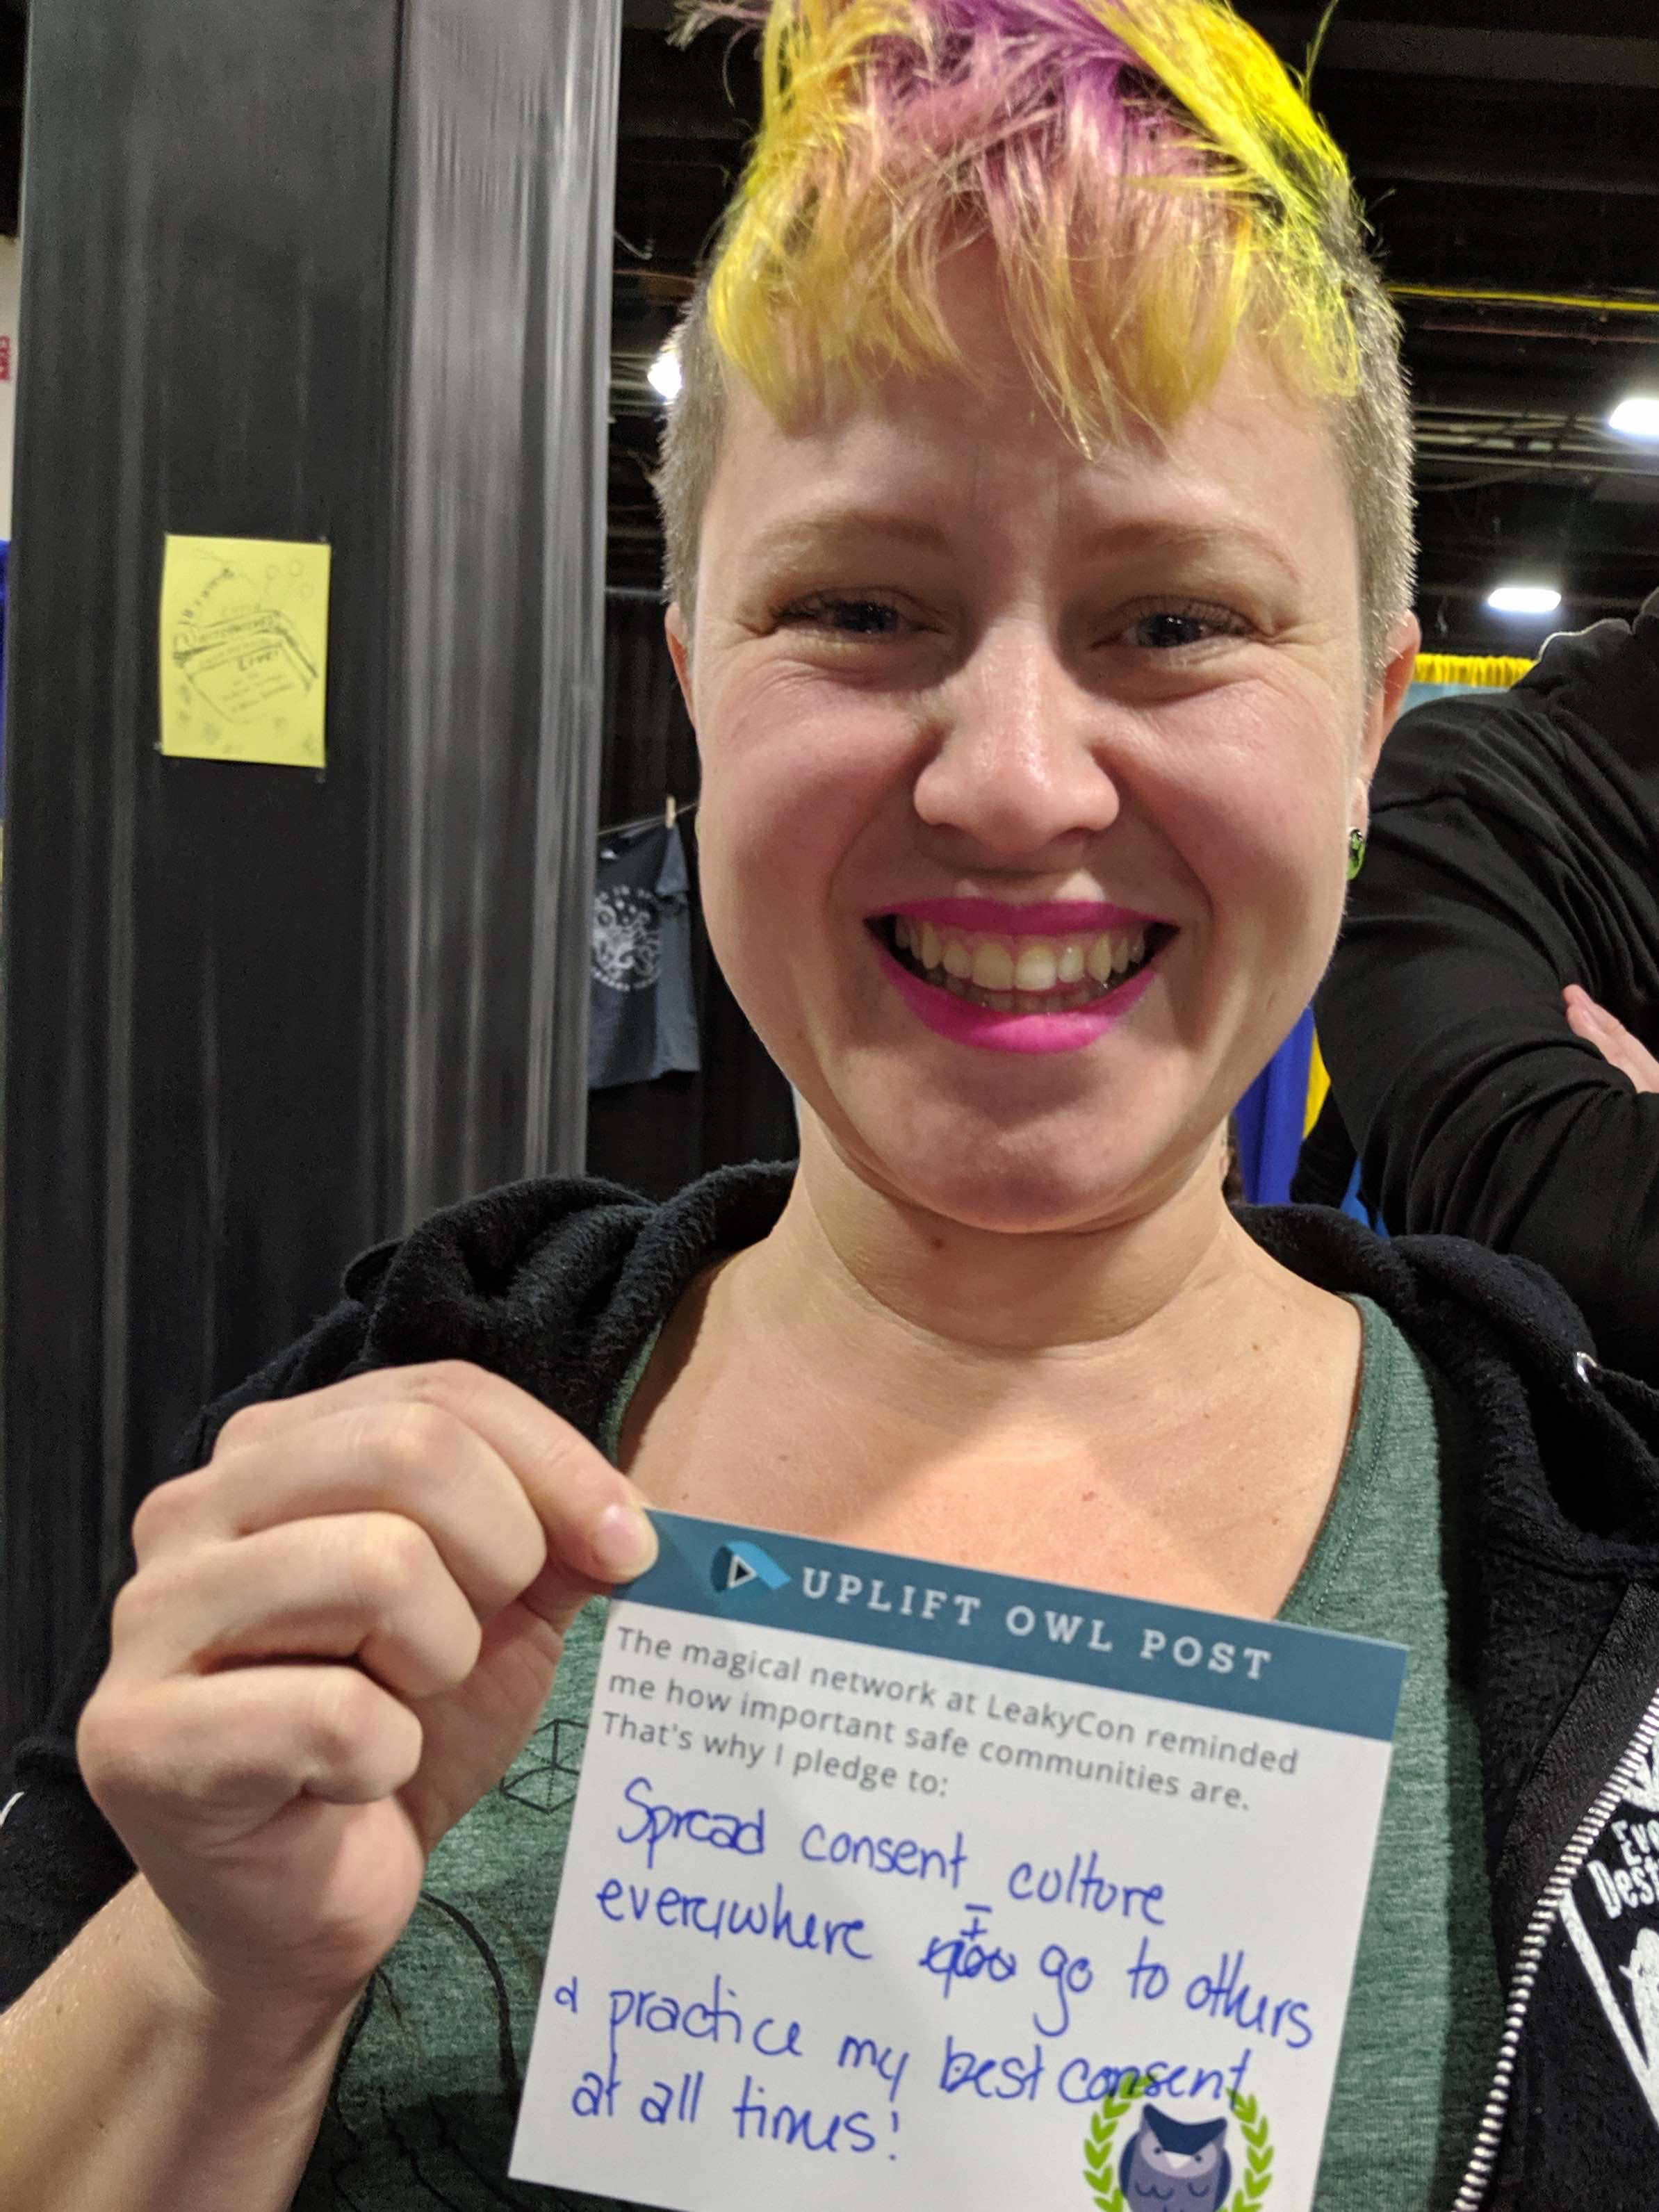 LIVE!
UPLIFT OWL POST
The magical network at LeakyCon reminded
me how important safe communities are.
That's why I pledge to:
Spread consent culture
everywhere I go to others
& practice my best consent
at all times!